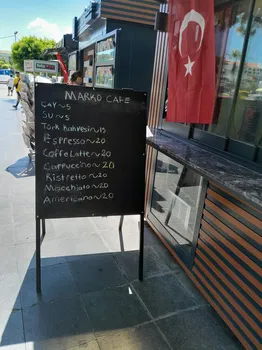 MARKO CAFE
ÇAY~5
SU~5
Türk kahvesi~15
Espresso~20
Coffe Latte~20
Cappuccino~20
Ristretto~20
Macchiato~20
Americano~20